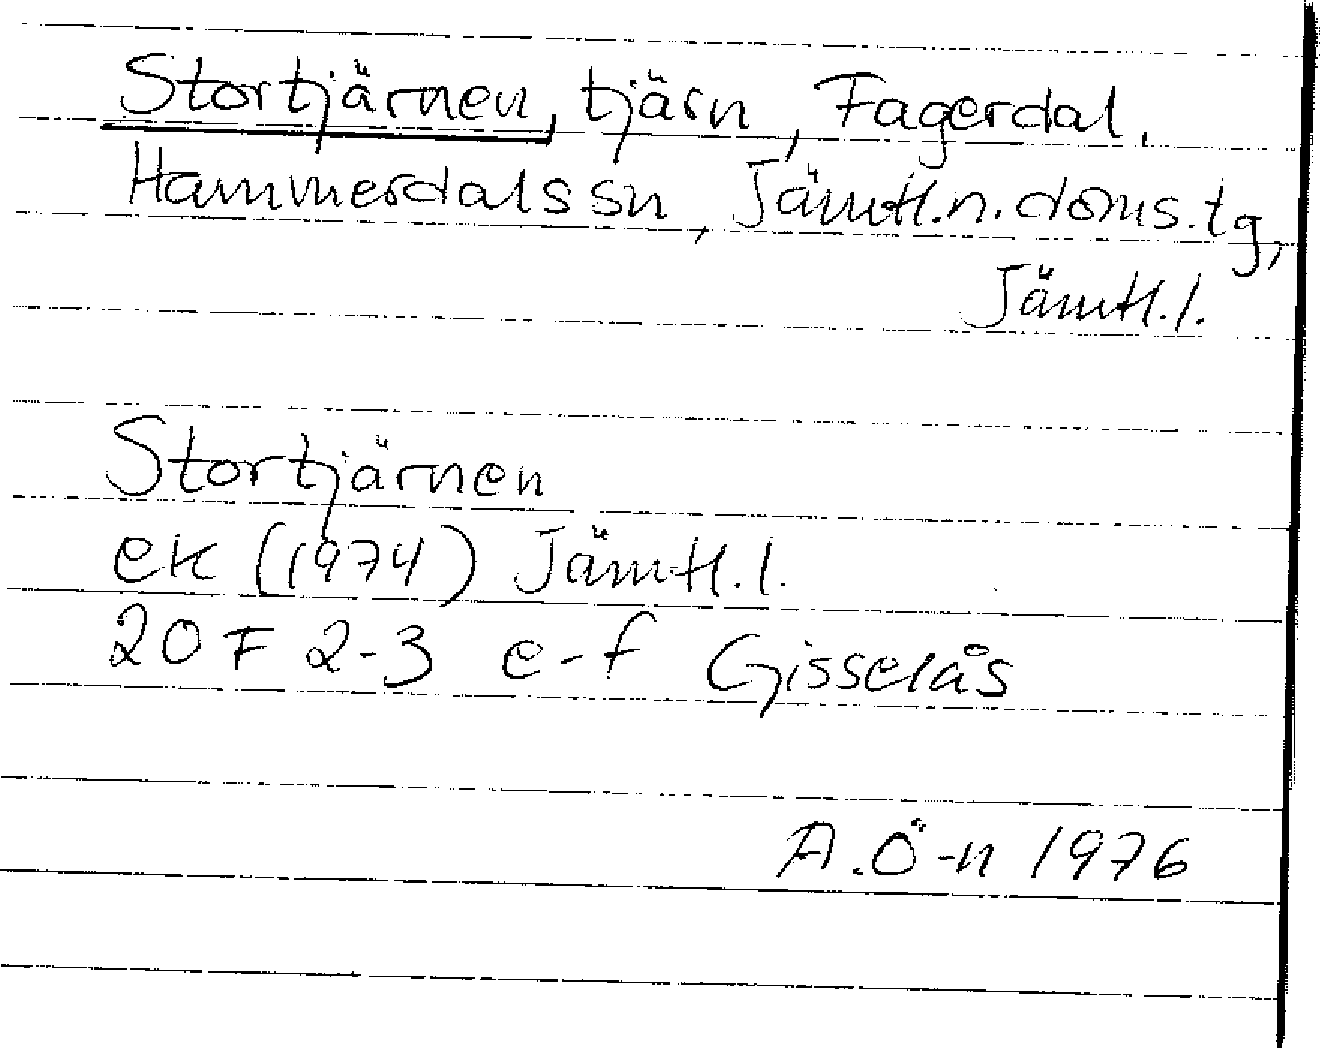 Stortjärnen, tjärn, Fagerdal,
Hammerdals sn, Jämtl.n.doms.tg,
Jämtl.l.
Stortjärnen
ek (1974) Jämtl.l.
20 F 2-3 e-f Gisselås
A.Ö-n 1976